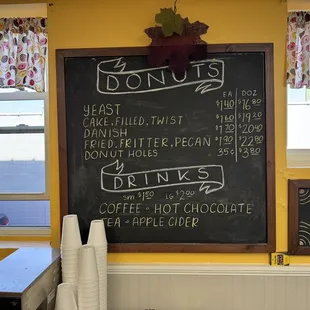 DONUTS
EA DOZ
YEAST $1.40 $16.80
CAKE, FILLED, TWIST $1.60 $19.20
DANISH $1.70 $20.40
FRIED, FRITTER, PECAN $1.90 $22.80
DONUT HOLES 35¢ $3.80
DRINKS
SM $1.50 LG $2.00
COFFEE - HOT CHOCOLATE
TEA - APPLE CIDER